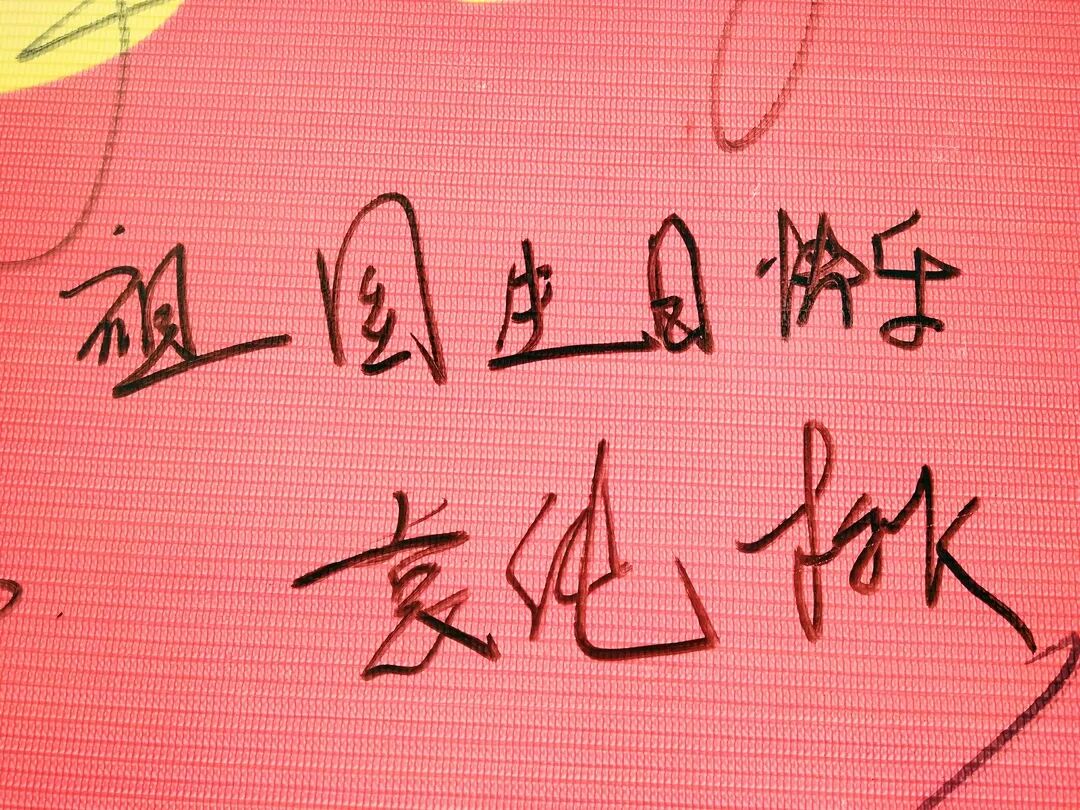 祖国生日快乐
袁纯